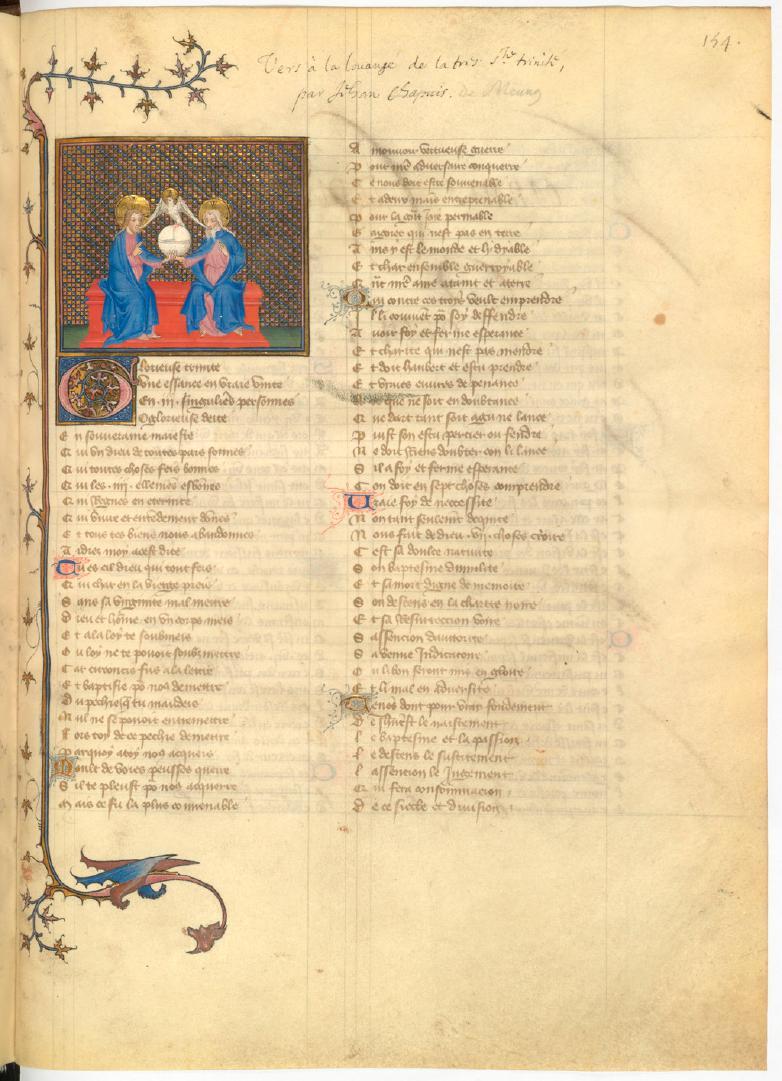 154.
Vers à la louange de la tres Ste trinité,
par Jehan Chapuis. de Meung
Glorieuse trinite
Une essance en vraie unite
En .iii. singulieres personnes
O glorieuse deite
En souveraine maieste
Qui un dieu de toutes pars sonnes
Qui toutes choses feis bonnes
Qui les .iiii. ellemens
Qui Regnes en eternite
Qui vivre et entendement dones
Et tous tes biens nous abandonnes
Aidies moy a cest dite
Tu es cil dieu qui tout feis
Qui char en la vierge preis
Sans sa virginite mal mettre
Dieu et home en un corps meis
Et a la loy te soubmeis
Ou loy ne te povoit soubzmettre
Car circoncis fus a la lettre
Et baptisie po nos demettre
Du pechie
Nul ne se povoit entremettre
Fors toy de ce pechie demettre
Parquoy a toy nos acqueis
Moult de voies peusses querre
Sil te pleust po nos acquerre
Mais ce fu la plus convenable
A mouvoir vertueuse guerre
Pour mon adversaire conquerre
Ce nous doit estre souvenable
Et a deux mais entreprenable
Pour la
E gaignier qui nest pas en terre
Ains y est le monde et li dyable
Et char ensemble guerroyable
Qui contre ces trois veult emprendre
Il li convient po soy deffendre
Avoir foy et ferme esperance
Et charite qui nest pas mendre
Et doit haubert et escu prendre
Et
que ne soit en doubtance
Que dart tant soit agu ne lance
Puist son escu percier ou fendre
Ne doit Riens doubter con li lance
Sil a foy et ferme esperance
Con doit en sept choses comprendre
Vraie foy de necessite
Non tant seulemt
Nous fait de dieu .vii. choses croire
Cest sa doulce nativite
Son baptesme dumilite
Et sa mort digne de memoire
Son descens en la chartre noire
Et sa Resurreccion voire
Sassencion dauctorite
Sa venue Judicatoire
Ou li bon seront mis en gloire
Et li mal en adversite
le naissement
Le baptesme et la passion
Le descens le suscitement
Lassencion le Jugement
Qui fera consommacion
De ce siecle et division